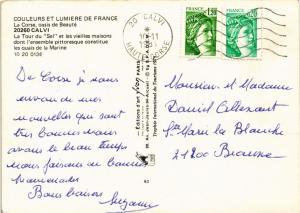 COULEURS ET LUMIERE DE FRANCE
La Corse, oasis de Beauté
20260 CALVI
La Tour du "Sel" et les vieilles maisons
dans l'ensemble pittoresque constitue
les quais de la Marine
10 20 0136
20 CALVI
HAUTE CORSE
FRANCE
1,20
FRANCE
De Corse je nous
envoi de nos
nouvelles qui sont
très bonnes nous
avons le beau temps
nous faisons de bonnes
promenades
Bons baisers
Suzanne
Monsieur et Madame
Daniel
Ste Marie la Blanche
21200 Beaune